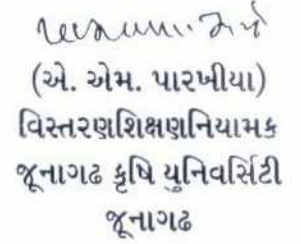 (એ. એમ. પારખીયા)
વિસ્તરણશિક્ષણનિયામક
જૂનાગઢ કૃષિ યુનિવર્સિટી
જૂનાગઢ